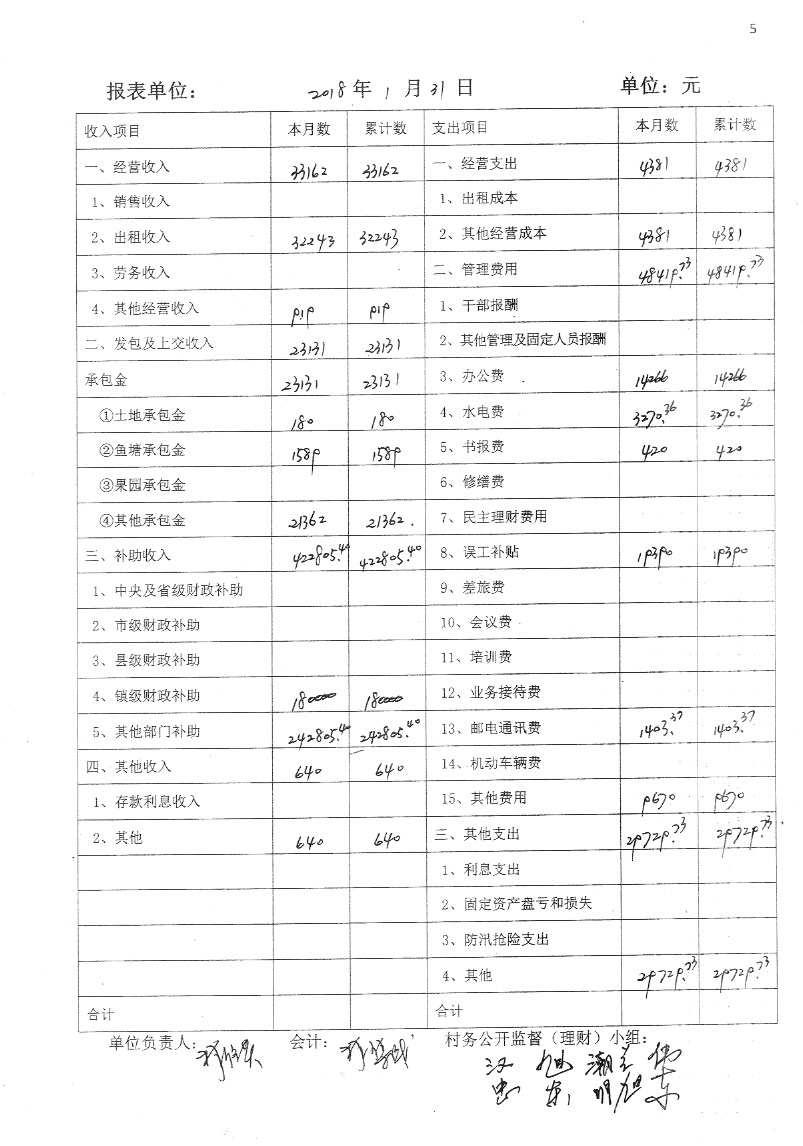 5
报表单位： 2018年1月31日 单位：元
收入项目 本月数 累计数 支出项目 本月数 累计数
一、经营收入 33162 33162 一、经营支出 4381 4381
1、销售收入 1、出租成本
2、出租收入 32243 32243 2、其他经营成本 4381 4381
3、劳务收入 二、管理费用 48419.73 48419.73
4、其他经营收入 919 919 1、干部报酬
二、发包及上交收入 23131 23131 2、其他管理及固定人员报酬
承包金 23131 23131 3、办公费 14266 14266
①土地承包金 180 180 4、水电费 3270.36 3270.36
②鱼塘承包金 1589 1589 5、书报费 420 420
③果园承包金 6、修缮费
④其他承包金 21362 21362. 7、民主理财费用
三、补助收入 422805.40 422805.40 8、误工补贴 19390 19390
1、中央及省级财政补助 9、差旅费
2、市级财政补助 10、会议费
3、县级财政补助 11、培训费
4、镇级财政补助 180000 180000 12、业务接待费
5、其他部门补助 242805.40 242805.40 13、邮电通讯费 1403.37 1403.37
四、其他收入 640 640 14、机动车辆费
1、存款利息收入 15、其他费用 9670 9670
2、其他 640 640 三、其他支出 29729.73 29729.73
1、利息支出
2、固定资产盘亏和损失
3、防汛抢险支出
4、其他 29729.73 29729.73
合计 合计
单位负责人： 会计： 村务公开监督（理财）小组：